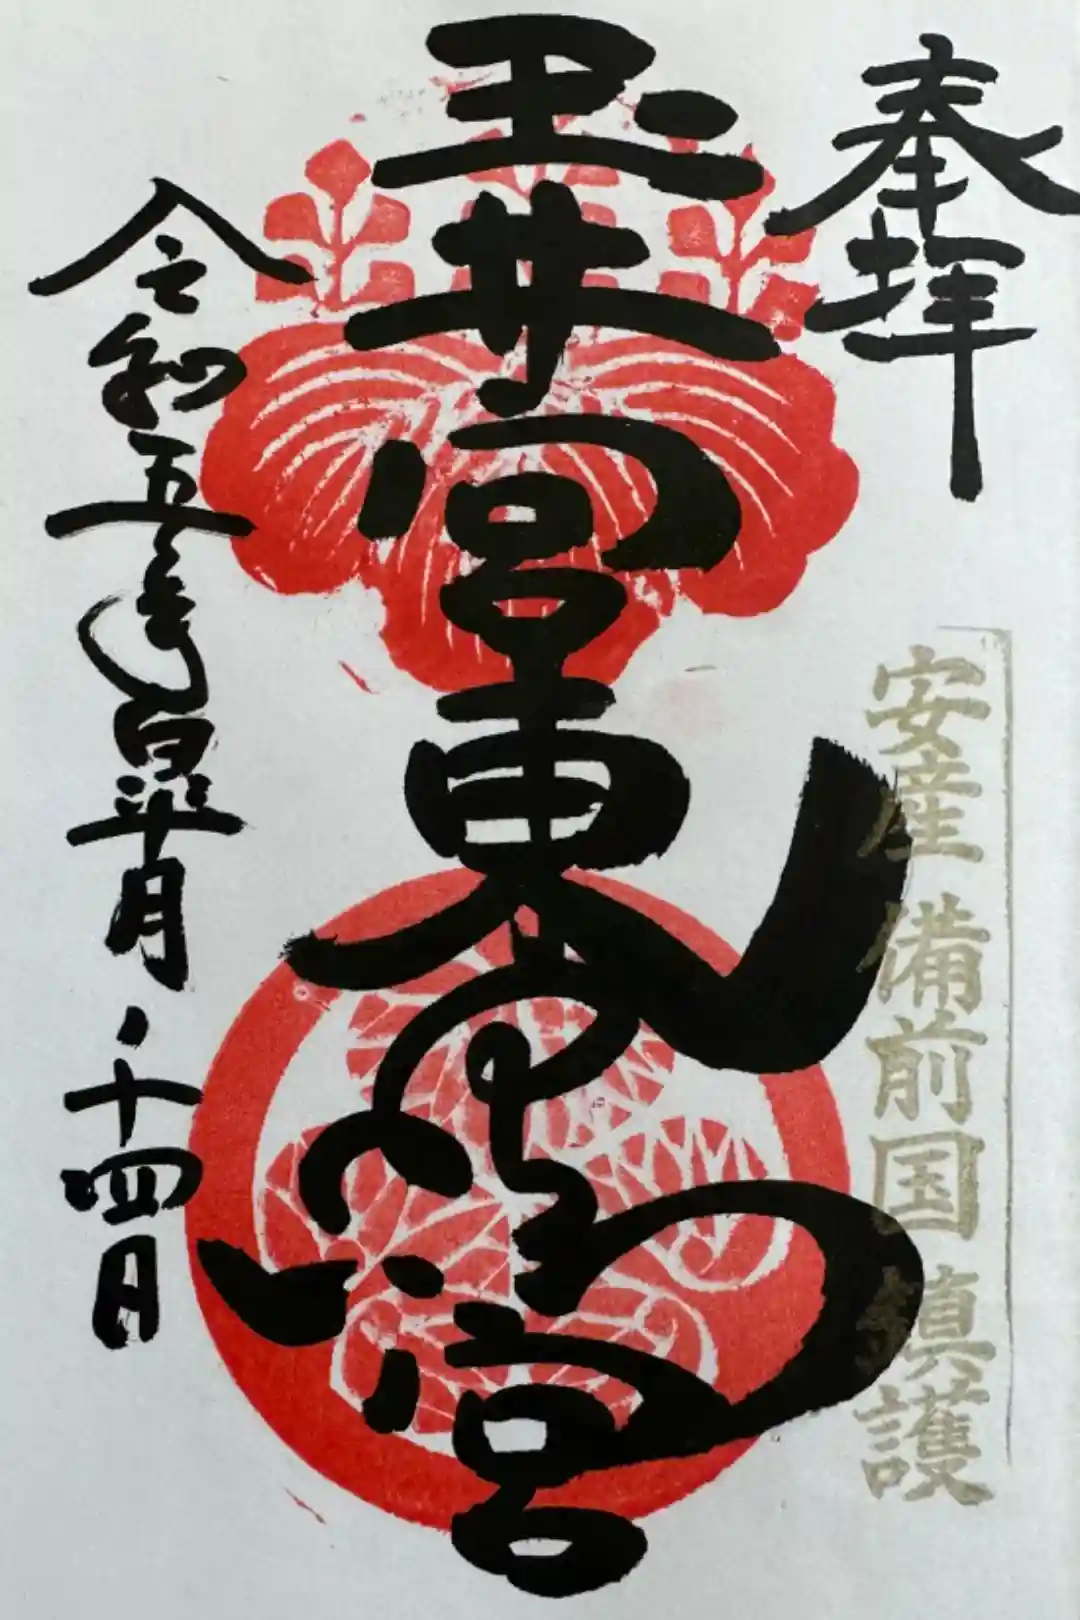 奉拝
安産 備前国 鎮護
玉井宮東照宮
令和五年皐月、十四日